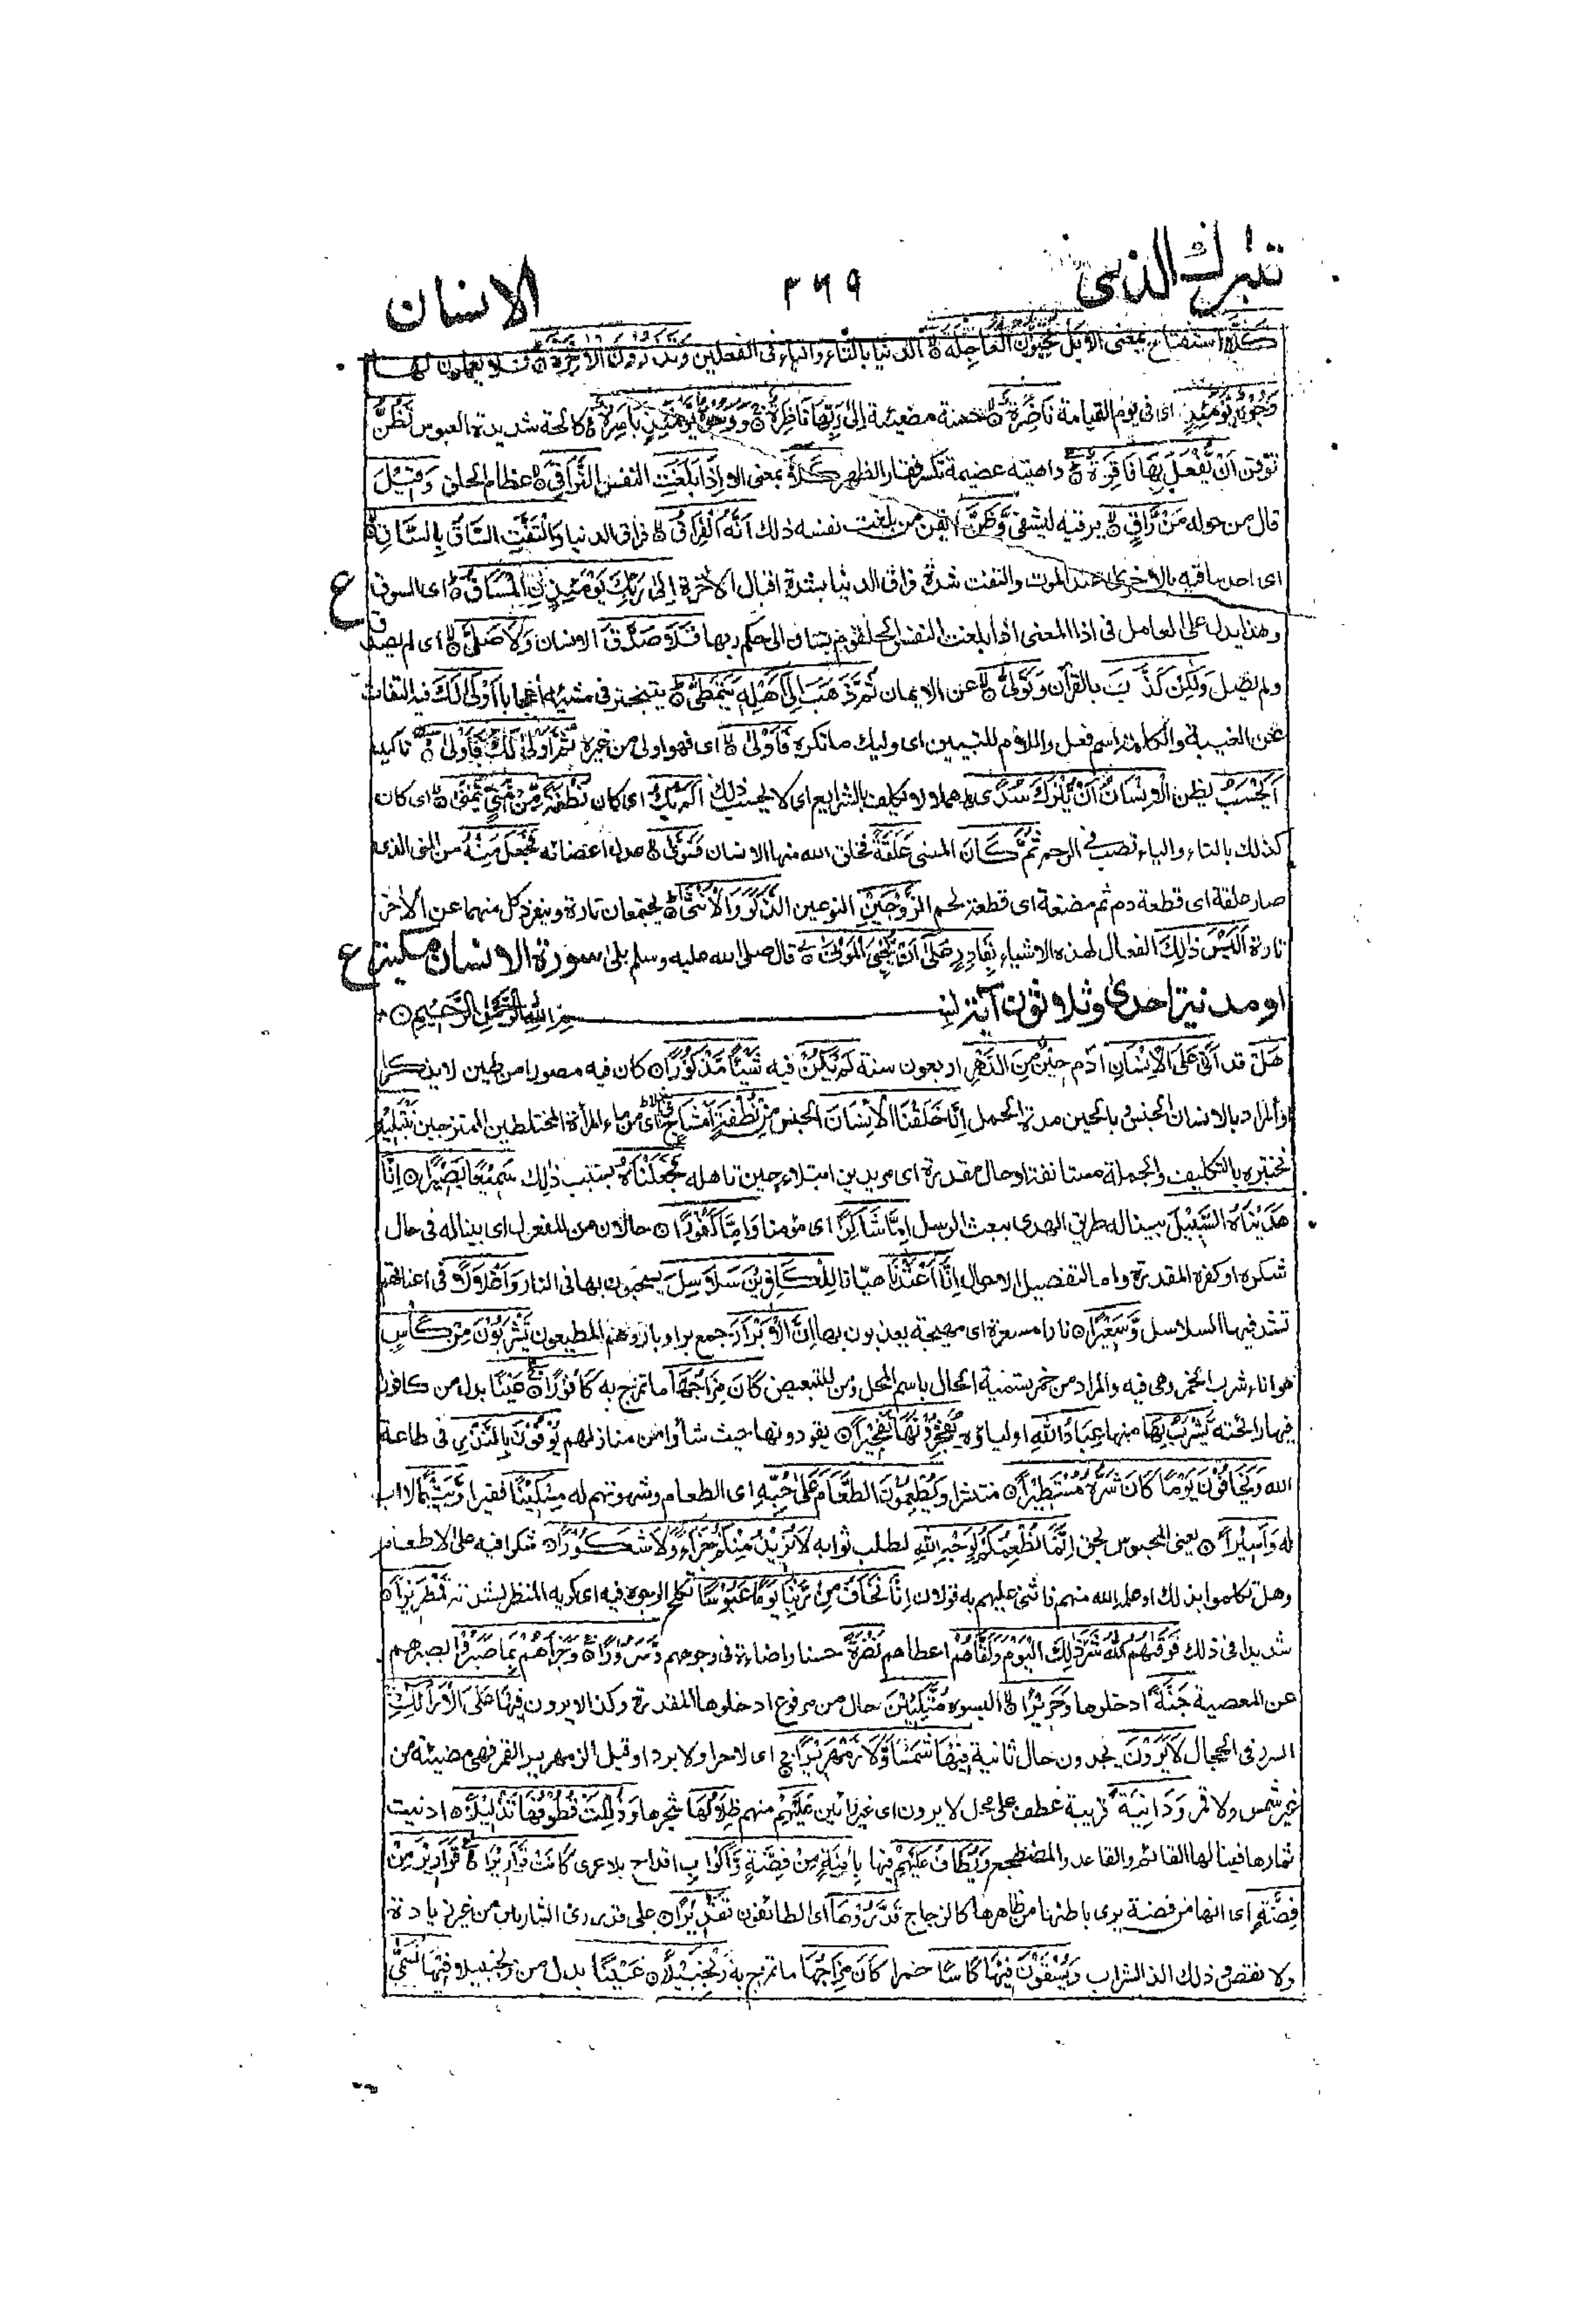 تبرك الذى
٣٦٩
الانسان
كَلَّا استفتاح بمعنى الا بَلْ تُحِبُّوْنَ الْعَاجِلَةَ الدنيا بالتاء والياء فى الفعلين وَتَذَرُوْنَ الْاٰخِرَةَ فلا يعملون لها
وُجُوْهٌ يَّوْمَئِذٍ اى فى يوم القيامة نَّاضِرَةٌ حسنة مضيئة اِلٰى رَبِّهَا نَاظِرَةٌ وَوُجُوْهٌ يَّوْمَئِذٍ بَاسِرَةٌ كالحة شديدة العبوس تَظُنُّ
توقن اَنْ يُّفْعَلَ بِهَا فَاقِرَةٌ داهية عضيمة تكسر فقار الظهر كَلَّا بمعنى الا اِذَا بَلَغَتِ النفس التَّرَاقِىَ عظام الحلق وَقِيْلَ
قال من حوله مَنْ رَّاقٍ يرقيه ليشفى وَّظَنَّ ايقن من بلغت نفسه ذلك اَنَّهُ الْفِرَاقُ فراق الدنيا وَالْتَفَّتِ السَّاقُ بِالسَّاقِ
اى احد ساقيه بالاخرى عند الموت والتفت شدة فراق الدنيا بشدة اقبال الاخرة اِلٰى رَبِّكَ يَوْمَئِذِ ࣙالْمَسَاقُ اى السوق ع
وهذا يدل على العامل فى اذا المعنى اذا بلغت النفس الحلقوم تساق الى حكم ربها فَلَا صَدَّقَ الانسان وَلَا صَلّٰى اى لم يصدق
ولم يصل وَلٰكِنْ كَذَّبَ بالقرآن وَتَوَلّٰى عن الايمان ثُمَّ ذَهَبَ اِلٰى اَهْلِهٖ يَتَمَطّٰى يتبختر فى مشيه اعجابا اَوْلٰى لَكَ فيه التفات
عن الغيبة والكلمة اسم فعل واللام للتبيين اى وليك ما تكره فَاَوْلٰى اى فهو اولى من غيره ثُمَّ اَوْلٰى لَكَ فَاَوْلٰى تاكيد
اَيَحْسَبُ يظن الْاِنْسَانُ اَنْ يُّتْرَكَ سُدًى هملا ولا يكلف بالشرايع اى لا يحسب ذلك اَلَمْ يَكُ اى كان نُطْفَةً مِّنْ مَّنِىٍّ يُّمْنٰى اى كان
كذلك بالتاء والياء تصب فى الرحم ثُمَّ كَانَ المنى عَلَقَةً فَخَلَقَ الله منها الانسان فَسَوّٰى عدل اعضائه فَجَعَلَ مِنْهُ من المنى الذى
صار علقة اى قطعة دم ثم مضغة اى قطعة لحم الزَّوْجَيْنِ النوعين الذَّكَرَ وَالْاُنْثٰى يجتمعان تارة وينفرد كل منهما عن الاخر
تارة اَلَيْسَ ذٰلِكَ الفعال لهذه الاشياء بِقَادِرٍ عَلٰى اَنْ يُّحْيِىَ الْمَوْتٰى قال صلى الله عليه وسلم بلى سورة الانسان مكية ع
او مدنية احدى وثلاثون آية بسم الله الرحمن الرحيم
هَلْ قد اَتٰى عَلَى الْاِنْسَانِ آدم حِيْنٌ مِّنَ الدَّهْرِ اربعون سنة لَمْ يَكُنْ فيه شَيْئًا مَّذْكُوْرًا كان فيه مصورا من طين لا يذكر
او المراد بالانسان الجنس وبالحين مدة الحمل اِنَّا خَلَقْنَا الْاِنْسَانَ الجنس مِنْ نُّطْفَةٍ اَمْشَاجٍ اخلاط اى من ماء المرأة المختلطين الممتزجين نَبْتَلِيْهِ
نختبره بالتكليف والجملة مستانفة او حال مقدرة اى مريدين ابتلاءه حين تاهله فَجَعَلْنٰهُ بسبب ذلك سَمِيْعًا بَصِيْرًا اِنَّا
هَدَيْنٰهُ السَّبِيْلَ بينا له طريق الهدى ببعث الرسل اِمَّا شَاكِرًا اى مؤمنا وَاِمَّا كَفُوْرًا حالان من المفعول اى بينا له فى حال
شكره او كفره المقدرة واما لتفصيل الاحوال اِنَّا اَعْتَدْنَا هيّانا لِلْكَافِرِيْنَ سَلٰسِلَ يسحبون بها فى النار وَاَغْلٰلًا فى اعناقهم
تشد فيها السلاسل وَّسَعِيْرًا نارا مسعرة اى مهيجة يعذبون بها اِنَّ الْاَبْرَارَ جمع بر او بار وهم المطيعون يَشْرَبُوْنَ مِنْ كَأْسٍ
هو اناء شرب الخمر وهى فيه والمراد من خمر تسمية الحال باسم المحل ومن للتبعيض كَانَ مِزَاجُهَا ما تمزج به كَافُوْرًا عَيْنًا بدل من كافورا
فيها رائحته يَّشْرَبُ بِهَا منها عِبَادُ اللّٰهِ اولياؤه يُفَجِّرُوْنَهَا تَفْجِيْرًا يقودونها حيث شاؤا من منازلهم يُوْفُوْنَ بِالنَّذْرِ فى طاعة
الله وَيَخَافُوْنَ يَوْمًا كَانَ شَرُّهٗ مُسْتَطِيْرًا منتشرا وَيُطْعِمُوْنَ الطَّعَامَ عَلٰى حُبِّهٖ اى الطعام وشهوتهم له مِسْكِيْنًا فقيرا وَّيَتِيْمًا لا اب
له وَاَسِيْرًا يعنى المحبوس بحق اِنَّمَا نُطْعِمُكُمْ لِوَجْهِ اللّٰهِ لطلب ثوابه لَا نُرِيْدُ مِنْكُمْ جَزَآءً وَّلَا شُكُوْرًا شكرا فيه على الاطعام
وهل تكلموا بذلك او علمه الله منهم فاثنى عليهم به قولان اِنَّا نَخَافُ مِنْ رَّبِّنَا يَوْمًا عَبُوْسًا تكلح الوجوه فيه اى كريه المنظر لشدته قَمْطَرِيْرًا
شديدا فى ذلك فَوَقٰهُمُ اللّٰهُ شَرَّ ذٰلِكَ الْيَوْمِ وَلَقّٰهُمْ اعطاهم نَضْرَةً حسنا واضاءة فى وجوههم وَّسُرُوْرًا وَجَزٰهُمْ بِمَا صَبَرُوْا بصبرهم
عن المعصية جَنَّةً ادخلوها وَّحَرِيْرًا البسوه مُتَّكِئِيْنَ حال من مرفوع ادخلوها المقدرة وكذا لا يرون فِيْهَا عَلَى الْاَرَآئِكِ
السرر فى الحجال لَا يَرَوْنَ يجدون حال ثانية فِيْهَا شَمْسًا وَّلَا زَمْهَرِيْرًا اى لا حرا ولا بردا وقيل الزمهرير القمر فهى مضيئة من
غير شمس ولا قمر وَدَانِيَةً قريبة عطف على محل لا يرون اى غير رائين عَلَيْهِمْ منهم ظِلٰلُهَا شجرها وَذُلِّلَتْ قُطُوْفُهَا تَذْلِيْلًا ادنيت
ثمارها فينالها القائم والقاعد والمضطجع وَيُطَافُ عَلَيْهِمْ فيها بِاٰنِيَةٍ مِّنْ فِضَّةٍ وَّاَكْوَابٍ اقداح بلا عرى كَانَتْ قَوَارِيْرَا قَوَارِيْرَ مِنْ
فِضَّةٍ اى انها من فضة يرى باطنها من ظاهرها كالزجاج قَدَّرُوْهَا اى الطائفون تَقْدِيْرًا على قدر رى الشاربين من غير زيادة
ولا نقص وذلك الذ الشراب وَيُسْقَوْنَ فِيْهَا كَاْسًا خمرا كَانَ مِزَاجُهَا ما تمزج به زَنْجَبِيْلًا عَيْنًا بدل من زنجبيلا فِيْهَا تُسَمّٰى